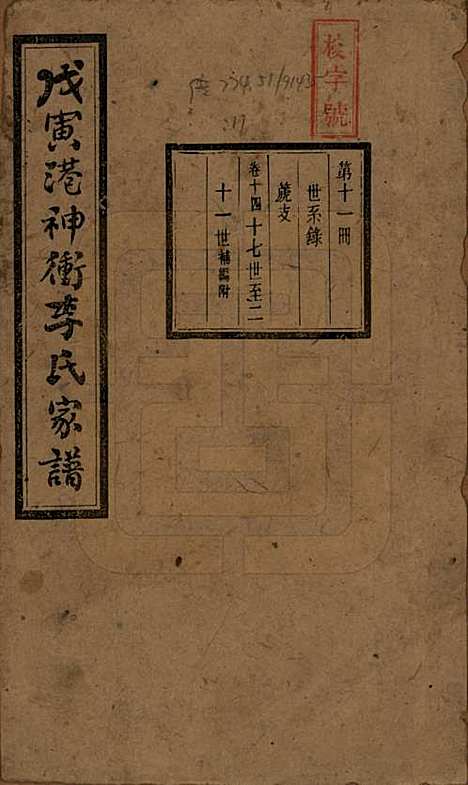 校字號
第十一冊
世系錄
蔸支
卷十四十七世至二
十一世補編附
戊寅港神衝李氏家譜